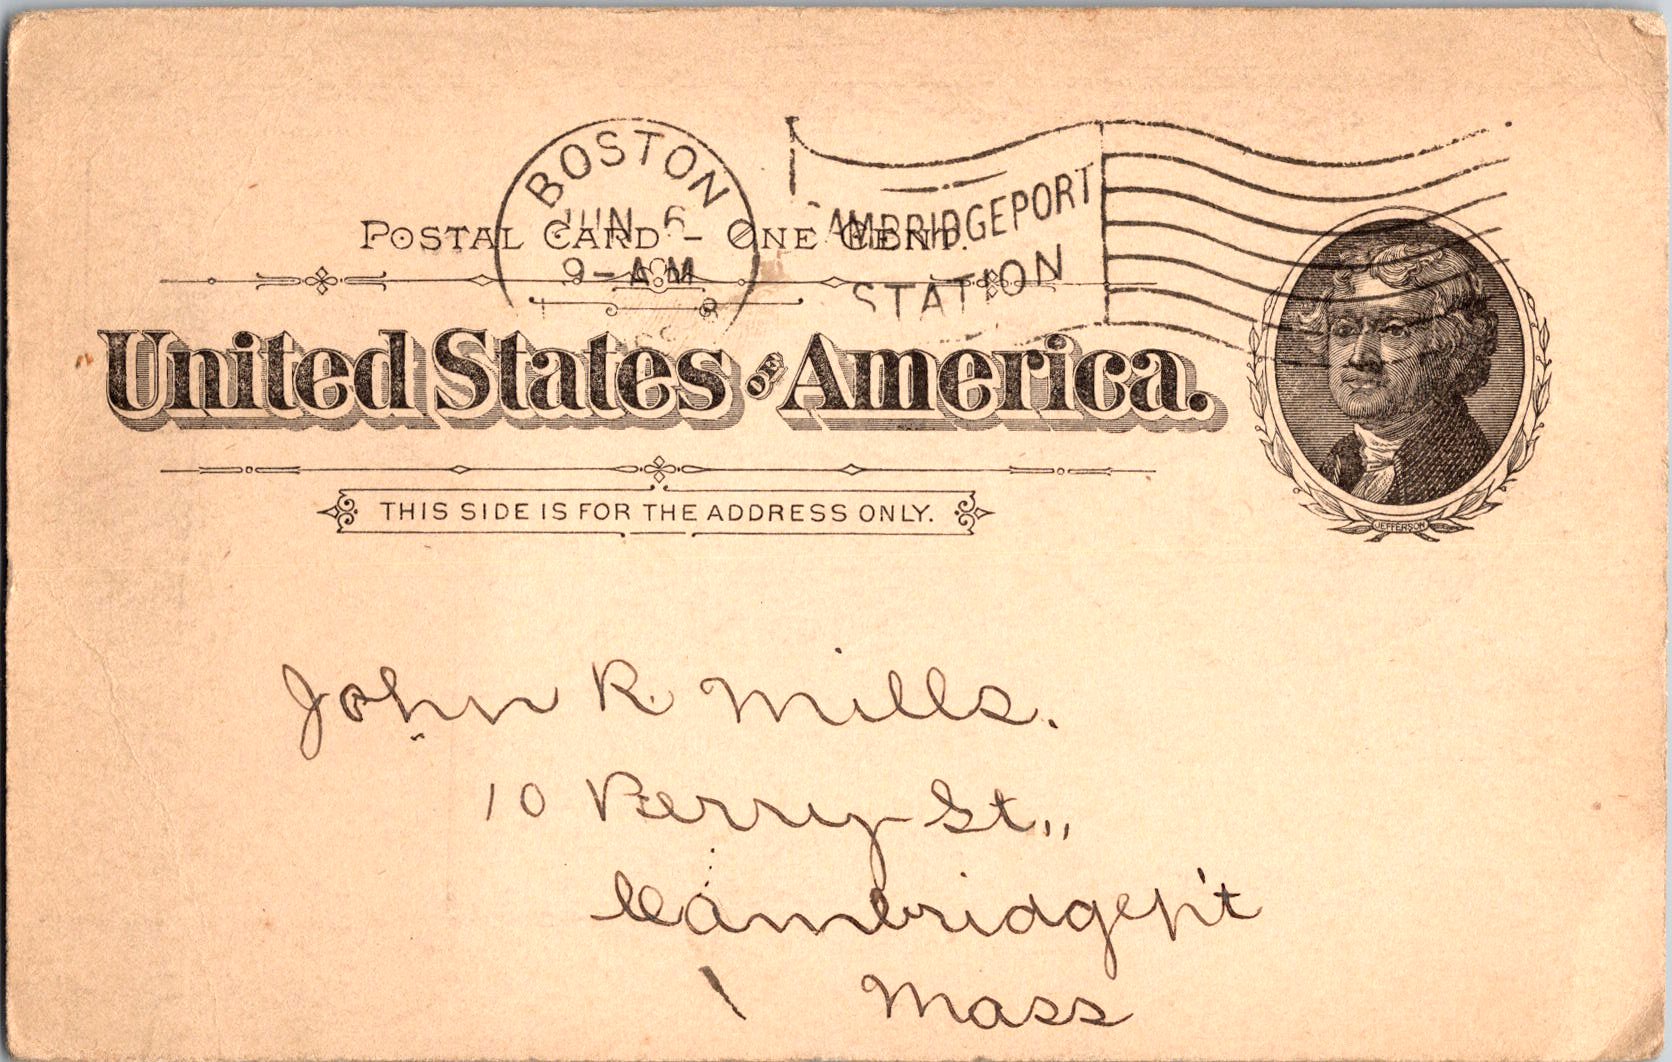 BOSTON
JUN 6
9-AM
CAMBRIDGEPORT
STATION
POSTAL CARD - ONE CENT.
United States OF America.
THIS SIDE IS FOR THE ADDRESS ONLY.
JEFFERSON
John R. Mills.
10 Perry St.,
Cambridgep't
Mass